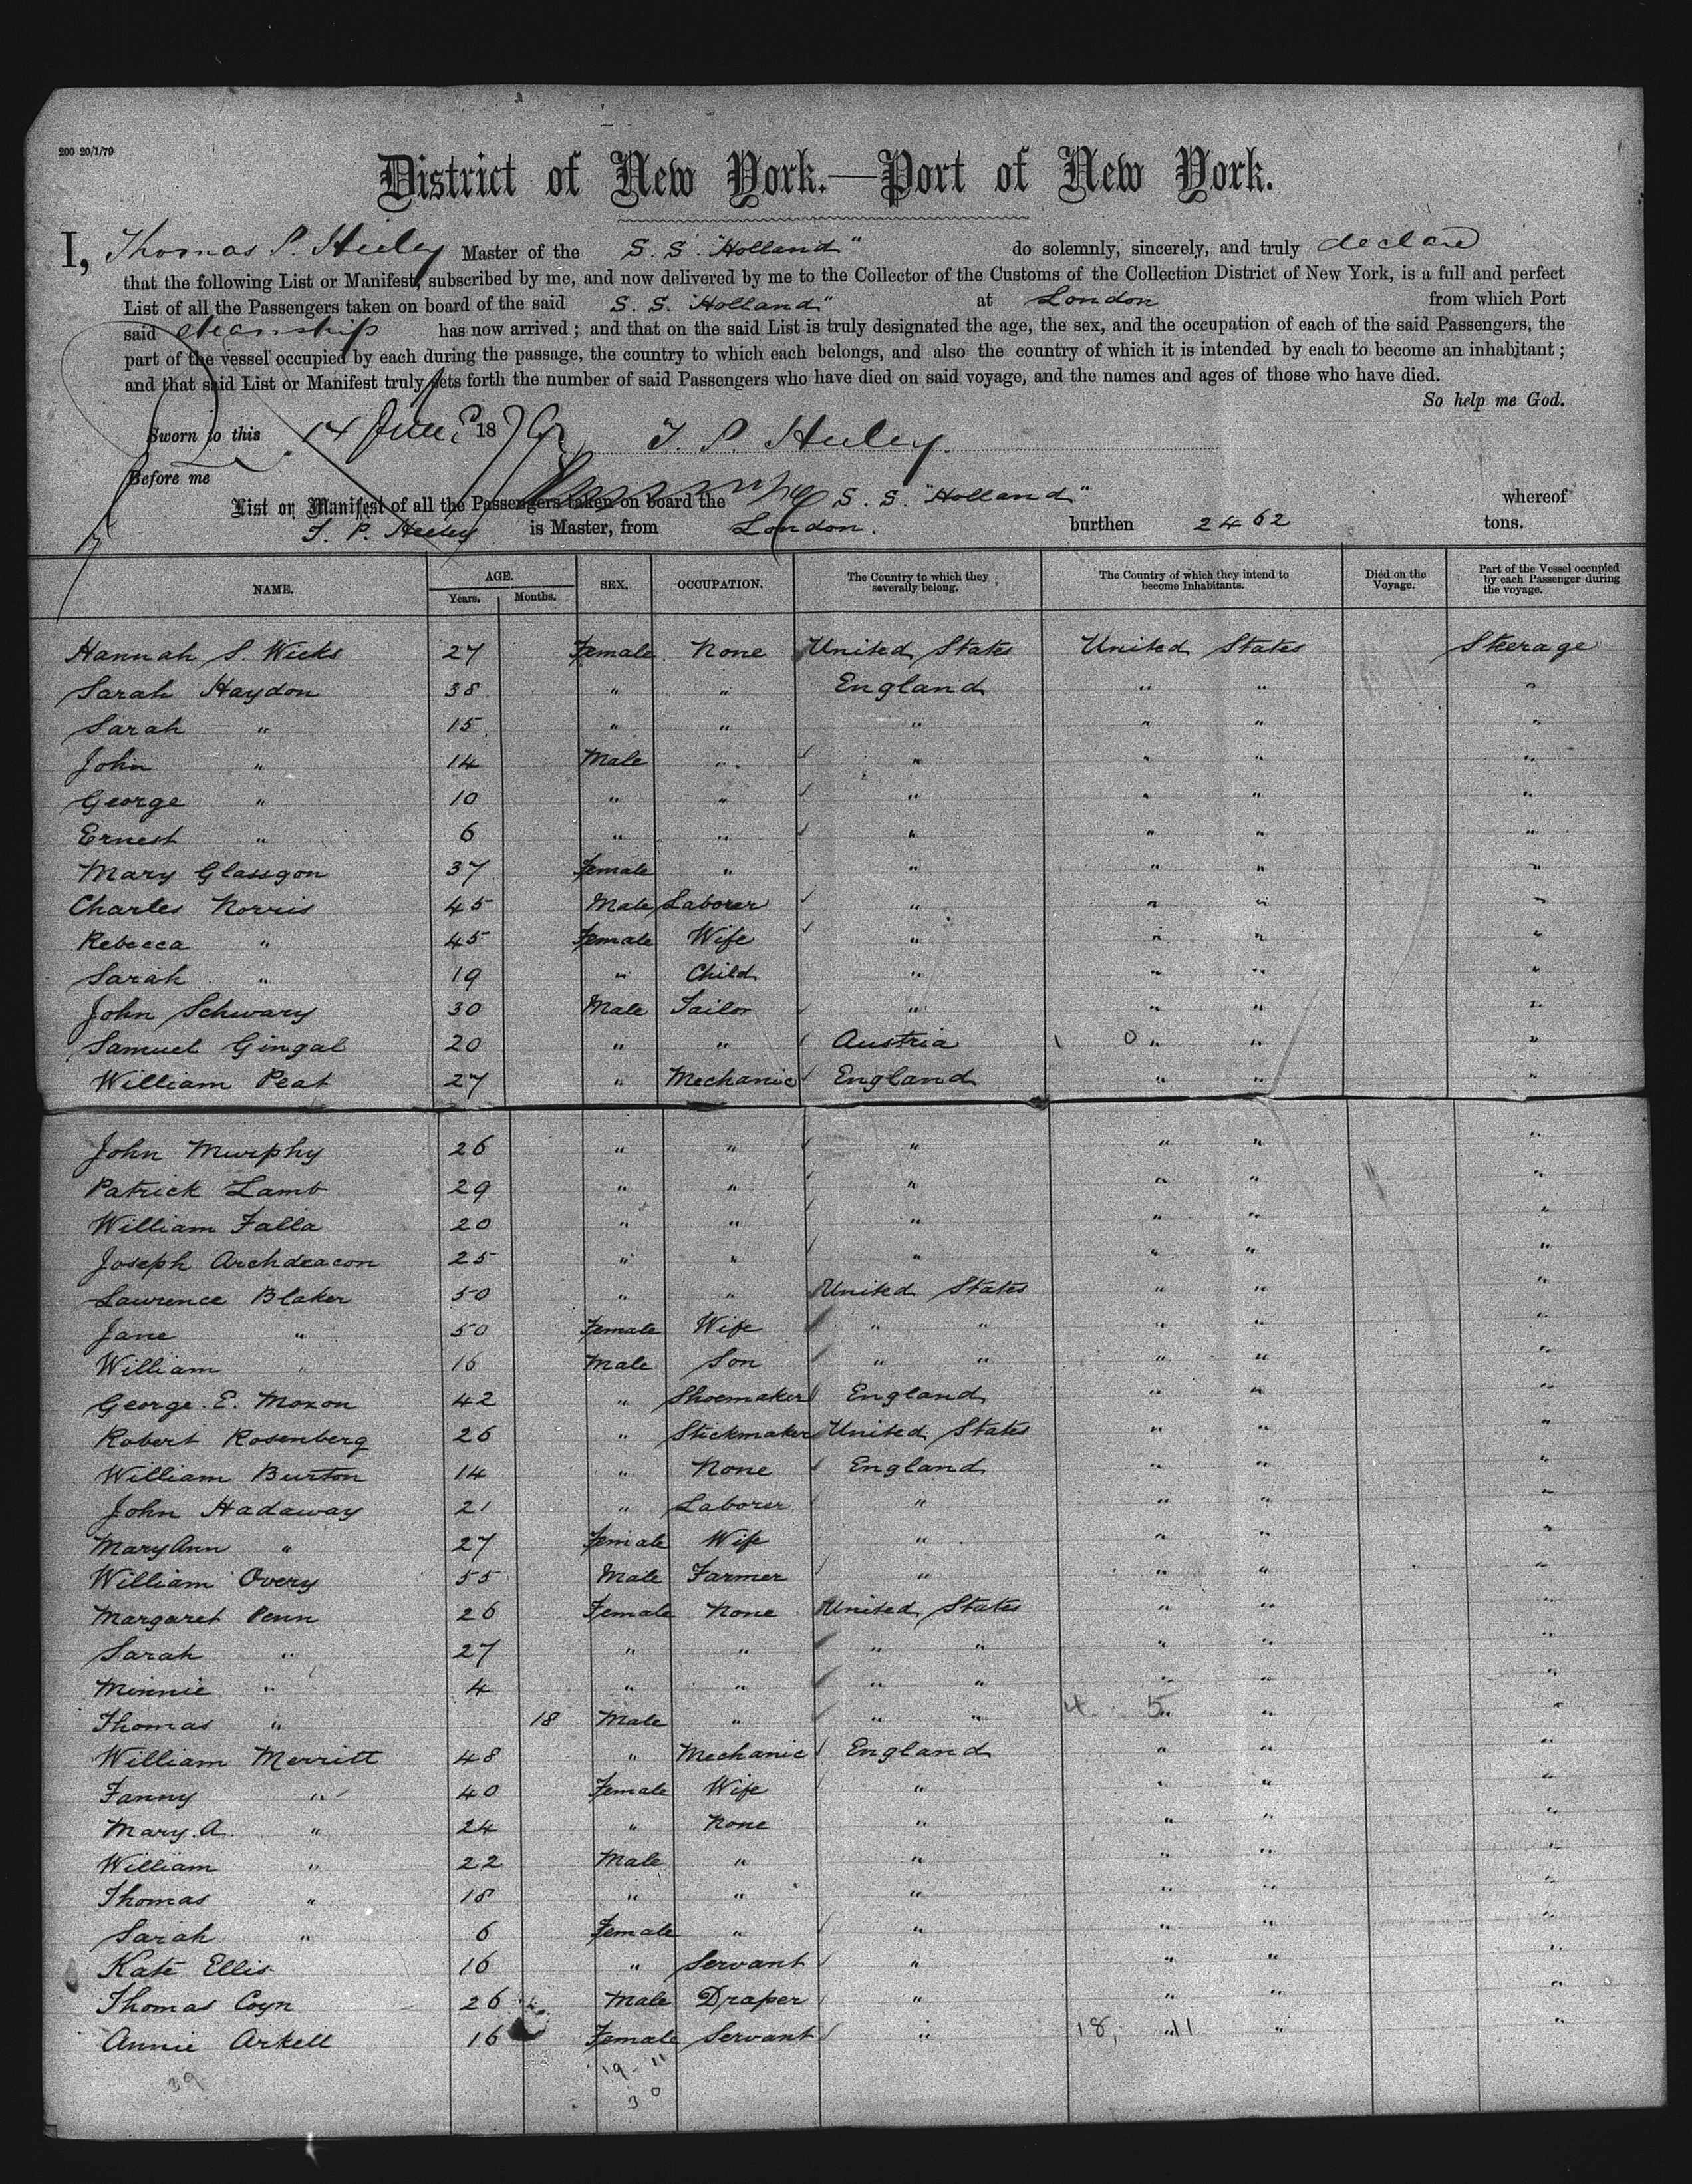 200 20/1/79
District of New York.—Port of New York.
I, Thomas P. Heeley Master of the S. S. "Holland" do solemnly, sincerely, and truly declare
that the following List or Manifest, subscribed by me, and now delivered by me to the Collector of the Customs of the Collection District of New York, is a full and perfect
List of all the Passengers taken on board of the said S. S. "Holland" at London from which Port
said steamship has now arrived; and that on the said List is truly designated the age, the sex, and the occupation of each of the said Passengers, the
part of the vessel occupied by each during the passage, the country to which each belongs, and also the country of which it is intended by each to become an inhabitant;
and that said List or Manifest truly sets forth the number of said Passengers who have died on said voyage, and the names and ages of those who have died.
So help me God.
Sworn to this 14 June 1879 T. P. Heeley.
Before me
List or Manifest of all the Passengers taken on board the S. S. "Holland" whereof
T. P. Heeley is Master, from London. burthen 2462 tons.
NAME. AGE. Years. Months. SEX. OCCUPATION. The Country to which they severally belong. The Country of which they intend to become Inhabitants. Died on the Voyage. Part of the Vessel occupied by each Passenger during the voyage.
Hannah S. Wicks 27 Female None United States United States Steerage
Sarah Haydon 38 " " England " " "
Sarah " 15 " " " " " "
John " 14 Male " " " " "
George " 10 " " " " " "
Ernest " 6 " " " " " "
Mary Glassgon 37 Female " " " " "
Charles Norris 45 Male Laborer " " " "
Rebecca " 45 Female Wife " " " "
Sarah " 19 " Child " " " "
John Schwary 30 Male Tailor " " " "
Samuel Gingal 20 " " Austria 1 0 " " "
William Peat 27 " Mechanic England " " "
John Murphy 26 " " " " " "
Patrick Lamb 29 " " " " " "
William Falla 20 " " " " " "
Joseph Archdeacon 25 " " " " " "
Lawrence Blaker 50 " " United States " " "
Jane " 50 Female Wife " " " " "
William " 16 Male Son " " " " "
George. E. Moxon 42 " Shoemaker England " " "
Robert Rosenberg 26 " Stickmaker United States " " "
William Burton 14 " None England " " "
John Hadaway 21 " Laborer " " " "
Mary Ann " 27 Female Wife " " " "
William Overy 55 Male Farmer " " " "
Margaret Penn 26 Female None United States " " "
Sarah " 27 " " " " " " "
Minnie " 4 " " " " " " "
Thomas " 18 Male " " " 4 5 " " "
William Merritt 48 " Mechanic England " " "
Fanny " 40 Female Wife " " " "
Mary. A. " 24 " None " " " "
William " 22 Male " " " " "
Thomas " 18 " " " " " "
Sarah " 6 Female " " " " "
Kate Ellis 16 " Servant " " " "
Thomas Coyn 26 Male Draper " " " "
Annie Arkell 16 Female Servant " 18, 11 " " "
39 19-11
30